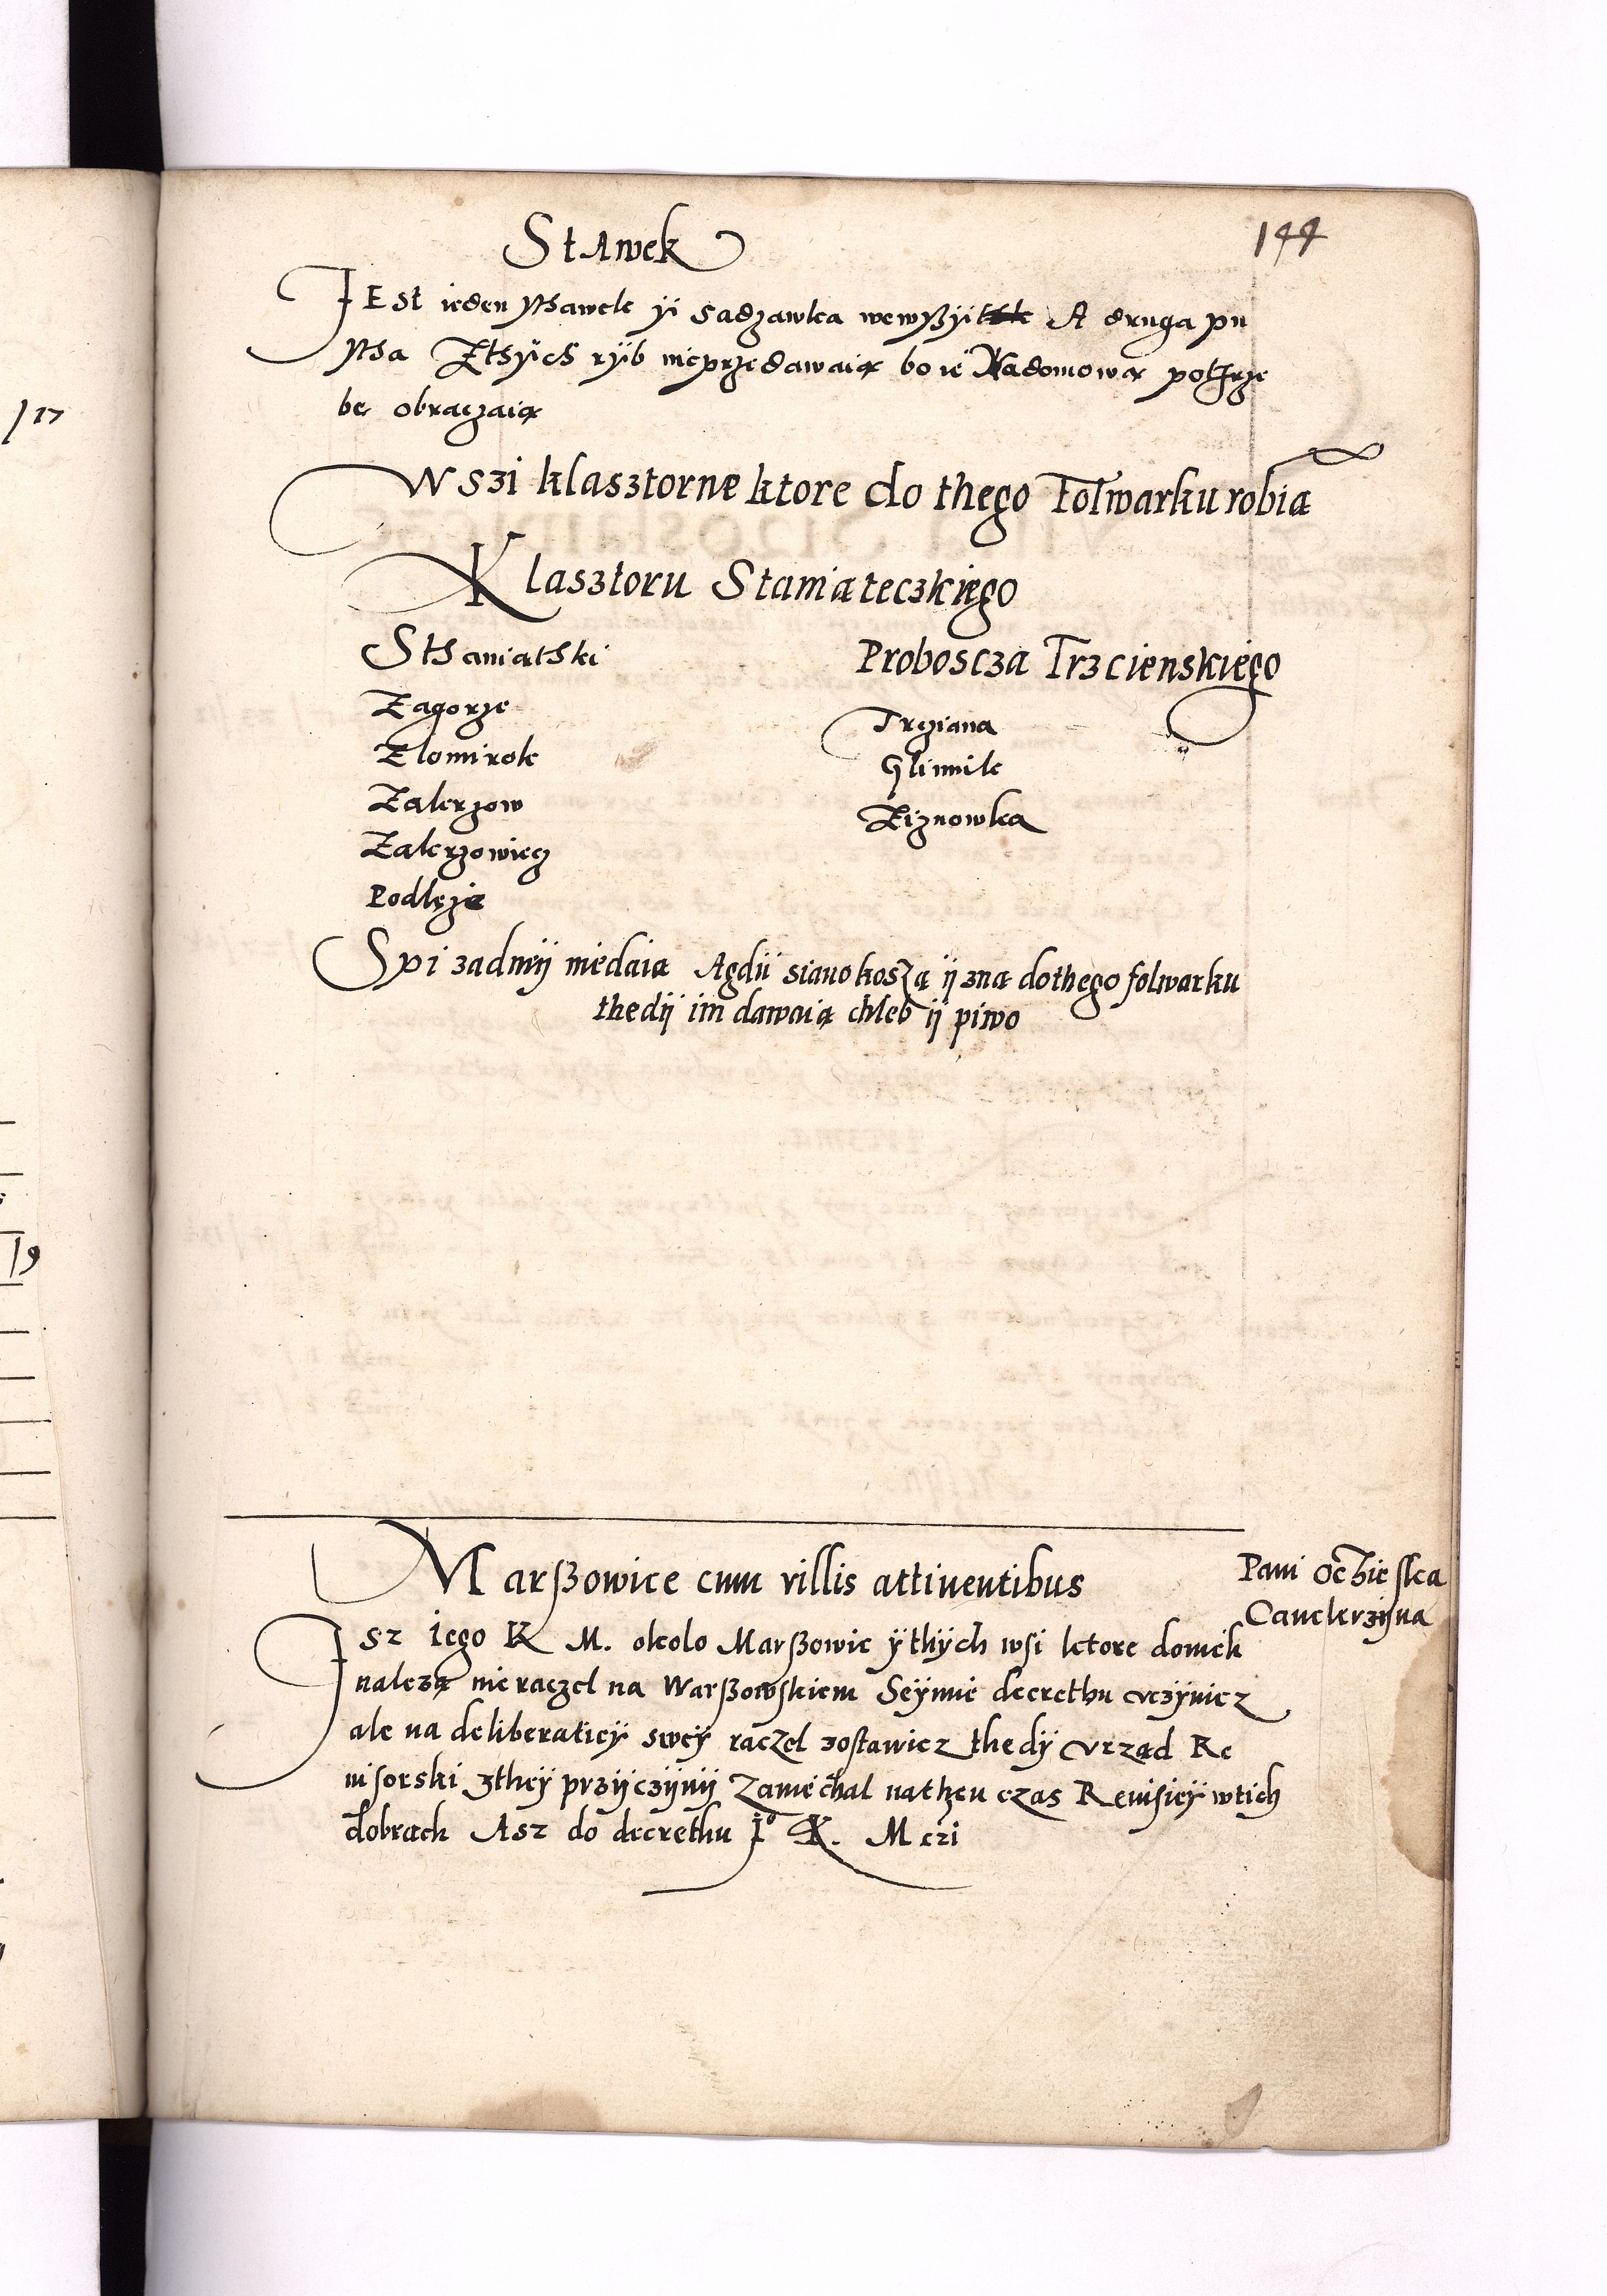 144
Stawek
JEst ieden sthawek ÿ sadzawka wewsßÿ A druga pu
stha Zthÿch rÿb nieprzedawaią bo ie Nadomową potrze
be obraczaią
Wszi klasztorne ktore do thego Folwarku robią
Klasztoru Staniąteczkiego
Sthaniąthki
Zagorze
Zlomirok
Zakrzow
Zakrzowiecz
Podlęże
Proboscza Trzcienskiego
Trzciana
Glinnik
Ziznowka
Spi zadnÿ niedaią Agdÿ siano koszą ÿ zną dothego folwarku
thedÿ im dawaią chleb ÿ piwo
Marßowice cum villis attinentibus
Pani Ocżieska
Canclerzÿna
Jsz Iego K M. okolo Marßowic ÿ thÿch wsi ktore domch
nalezą nie raczel na Warßowskiem Seÿmie decrethu vczÿnicz
ale na deliberaticÿ sweÿ raczel zostawicz thedÿ vrząd Re
uisorski ztheÿ przÿczÿnÿ Zaniechal nathen czas Reuisieÿ wtich
dobrach Asz do decrethu Iº K. Mczi
17
19